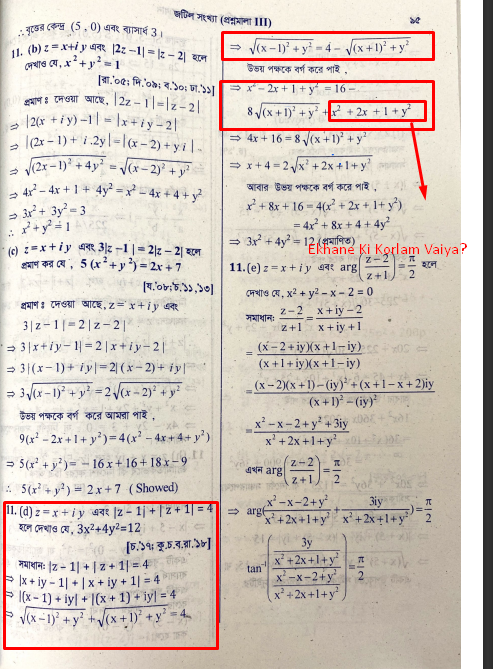 জটিল সংখ্যা (প্রশ্নমালা III)
৯৫
∴ বৃত্তের কেন্দ্র (5 , 0) এবং ব্যাসার্ধ 3 ।
11. (b) z = x+i y এবং |2z –1| = |z – 2| হলে
দেখাও যে, x² + y² = 1
[রা.'০৫; দি.'০৯; ব.'১০; ঢা.'১১]
প্রমাণ ঃ দেওয়া আছে, |2z –1| = |z – 2|
⇒ |2(x + i y) –1| = |x + i y – 2|
⇒ |(2x –1) + i .2y| = |(x – 2) + y i|
⇒ √((2x –1)² + 4y²) = √((x – 2)² + y²)
⇒ 4x² – 4x + 1 + 4y² = x² – 4x + 4 + y²
⇒ 3x² + 3y² = 3
∴ x² + y² = 1
(c) z = x + i y এবং 3|z –1| = 2|z – 2| হলে
প্রমাণ কর যে, 5 (x² + y²) = 2x + 7
[য.'০৮; চ.'১১,'১৩]
প্রমাণ ঃ দেওয়া আছে, z = x + i y এবং
3 | z –1| = 2 | z – 2 |
⇒ 3 | x + i y –1| = 2 | x + i y – 2|
⇒ 3 |(x –1) + i y| = 2| (x – 2) + i y|
⇒ 3√((x –1)² + y²) = 2√((x – 2)² + y²)
উভয় পক্ষকে বর্গ করে আমরা পাই ,
9(x² – 2x + 1 + y²) = 4(x² – 4x + 4 + y²)
⇒ 5(x² + y²) = – 16x + 16 + 18x – 9
∴ 5(x² + y²) = 2x + 7 ( Showed)
11. (d) z = x + iy এবং |z – 1| + | z + 1| = 4
হলে দেখাও যে, 3x²+4y²=12
[চ.'১৭; কু.চ.ব.রা.'১৮]
সমাধান: |z – 1| + | z + 1| = 4
⇒ |x + iy – 1| + | x + iy + 1| = 4
⇒ |(x – 1) + iy| + |(x + 1) + iy| = 4
⇒ √((x – 1)² + y²) + √((x + 1)² + y²) = 4
⇒ √((x – 1)² + y²) = 4 – √((x + 1)² + y²)
উভয় পক্ষকে বর্গ করে পাই ,
⇒ x² – 2x + 1 + y² = 16 –
8√((x + 1)² + y²) + x² + 2x + 1 + y²
⇒ 4x + 16 = 8√((x + 1)² + y²)
⇒ x + 4 = 2√(x² + 2x + 1 + y²)
আবার উভয় পক্ষকে বর্গ করে পাই ,
x² + 8x + 16 = 4(x² + 2x + 1 + y²)
= 4x² + 8x + 4 + 4y²
⇒ 3x² + 4y² = 12 (প্রমাণিত)
Ekhane Ki Korlam Vaiya?
11.(e) z = x + iy এবং arg((z – 2)/(z + 1)) = π/2 হলে
দেখাও যে, x² + y² – x – 2 = 0
সমাধান: (z – 2)/(z + 1) = (x + iy – 2)/(x + iy + 1)
= ((x – 2 + iy)(x + 1 – iy))/((x + 1 + iy)(x + 1 – iy))
= ((x – 2)(x + 1) – (iy)² + (x + 1 – x + 2)iy)/((x + 1)² – (iy)²)
= (x² – x – 2 + y² + 3iy)/(x² + 2x + 1 + y²)
এখন arg((z – 2)/(z + 1)) = π/2
⇒ arg((x² – x – 2 + y²)/(x² + 2x + 1 + y²) + 3iy/(x² + 2x + 1 + y²)) = π/2
tan⁻¹((3y/(x² + 2x + 1 + y²))/((x² – x – 2 + y²)/(x² + 2x + 1 + y²))) = π/2